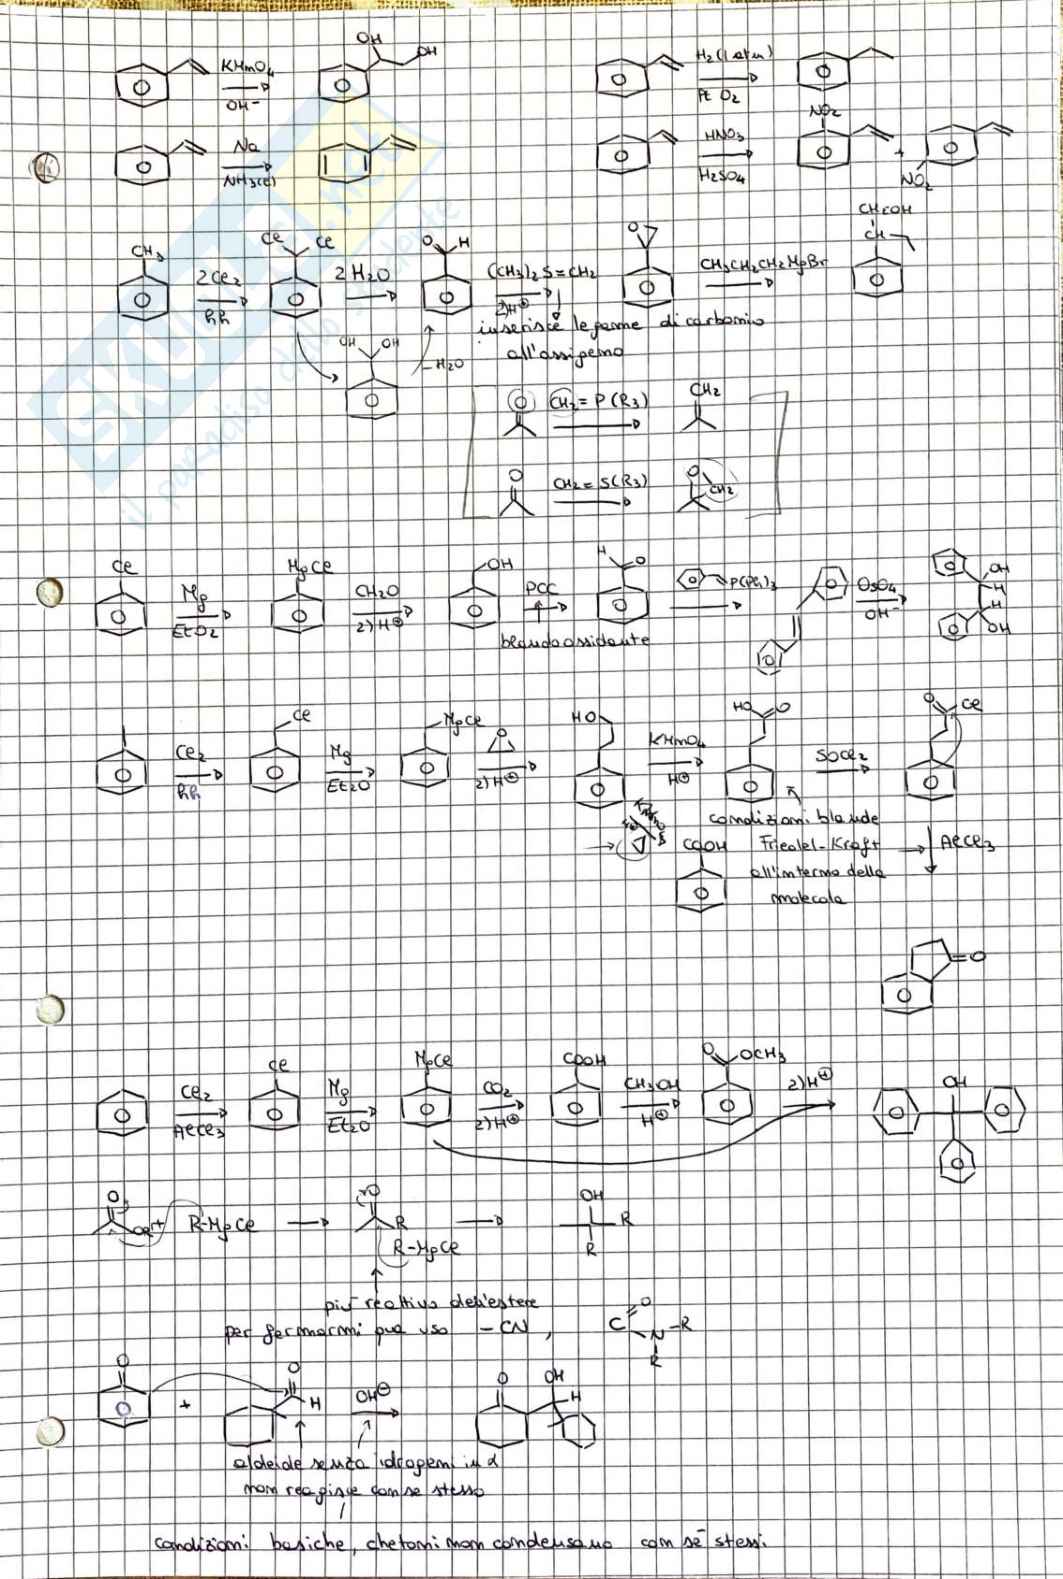 OH
OH
KMnO4
OH-
H2(1 atm)
Pt O2
NO2
Na
NH3(l)
HNO3
H2SO4
+
NO2
CH3
2Cl2
hh
Cl Cl
2 H2O
O H
(CH3)2S=CH2
2)H⊕
O
CH3CH2CH2MgBr
CH2OH
CH
inserisce legame di carbonio
all'ossigeno
OH OH
-H2O
O CH2=P(R3) CH2
O CH2=S(R3) O CH2
Cl
Mg
EtO2
MgCl
CH2O
2)H⊕
OH
PCC
blando ossidante
H O
P(Ph)3
OsO4
OH-
OH
H
H
OH
Cl2
hh
Cl
Mg
Et2O
MgCl
O
2)H⊕
HO
KMnO4
H⊕
HO O
SOCl2
O Cl
KMnO4
Δ
COOH
condizioni blande
Friedel-Kraft
all'interno della
molecola
AlCl3
O
Cl2
AlCl3
Cl
Mg
Et2O
MgCl
CO2
2)H⊕
COOH
CH3OH
H⊕
O OCH3
2)H⊕
OH
O
OR + R-MgCl
O
R
R-MgCl
OH
R
R
più reattivo dell'estere
per fermarmi può uso -CN,
C O
N-R
R
O
+
O
H
OH⊖
O OH
H
aldeide senza idrogeni in α
non reagisce con se stesso
condizioni basiche, chetoni non condensano con sé stessi.
SKUOLA.net
il paradiso dello studente